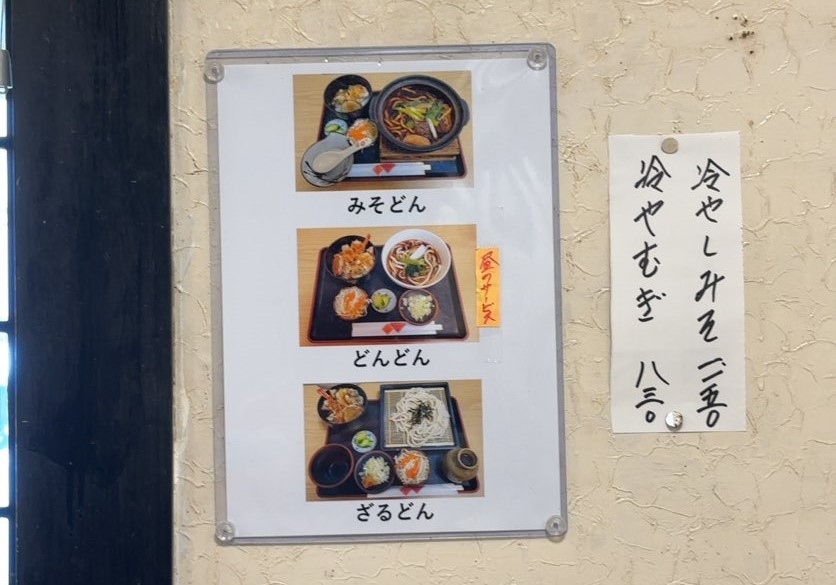 みそどん
昼のサービス
どんどん
ざるどん
冷やしみそ 一一五〇
冷やむぎ 八三〇